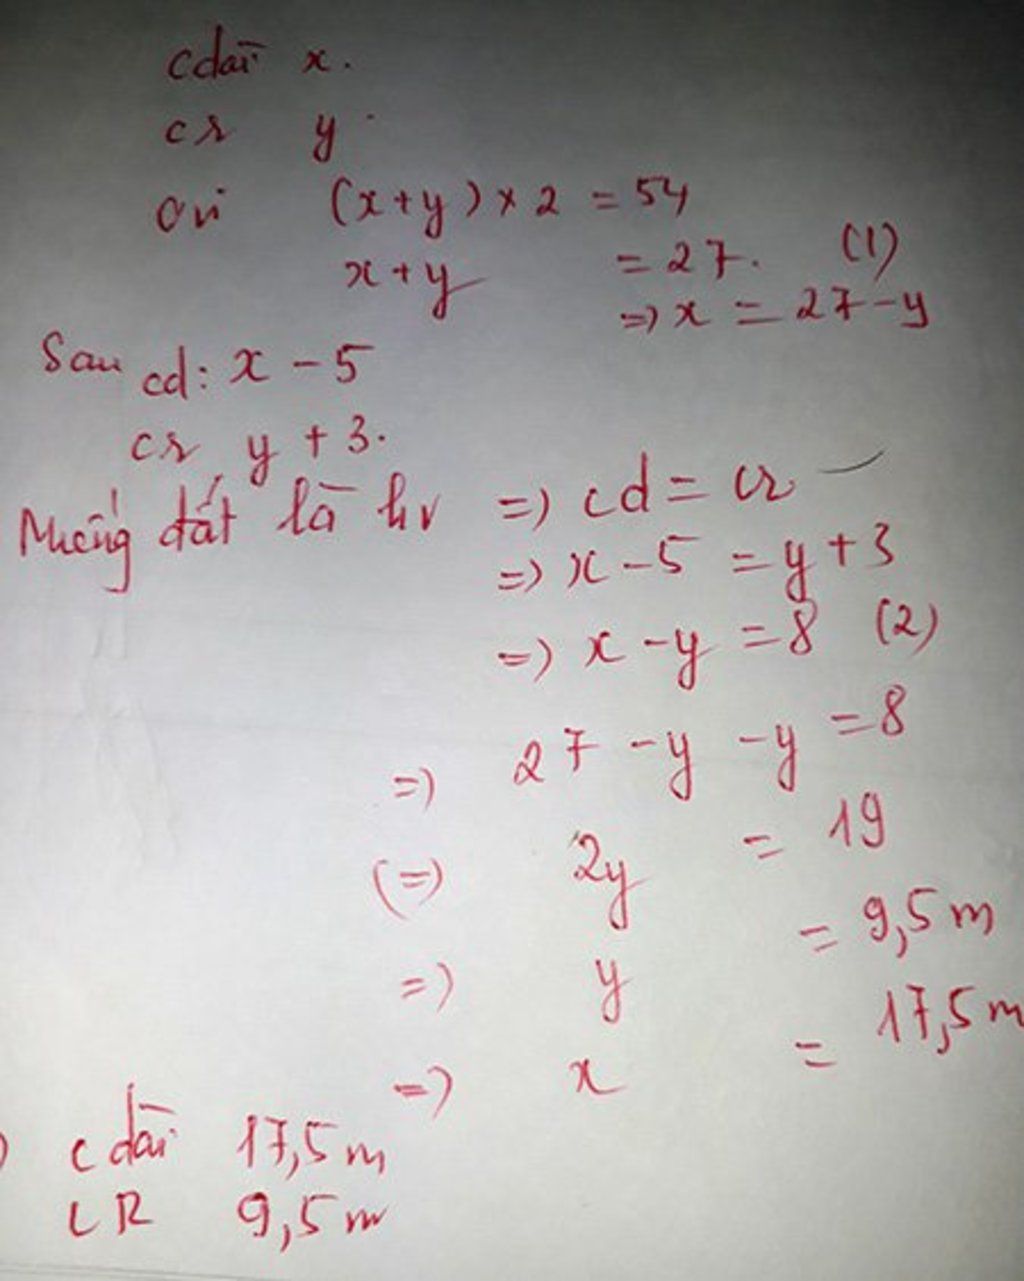 cdài x.
cr y.
cvi (x+y) × 2 = 54
x + y = 27. (1)
=> x = 27 - y
Sau cd: x - 5
cr y + 3.
Muếng đất là hv => cd = cr
=> x - 5 = y + 3
=> x - y = 8 (2)
=> 27 - y - y = 8
(=) 2y = 19
=) y = 9,5 m
=) x = 17,5 m
) c dài 17,5 m
CR 9,5 m